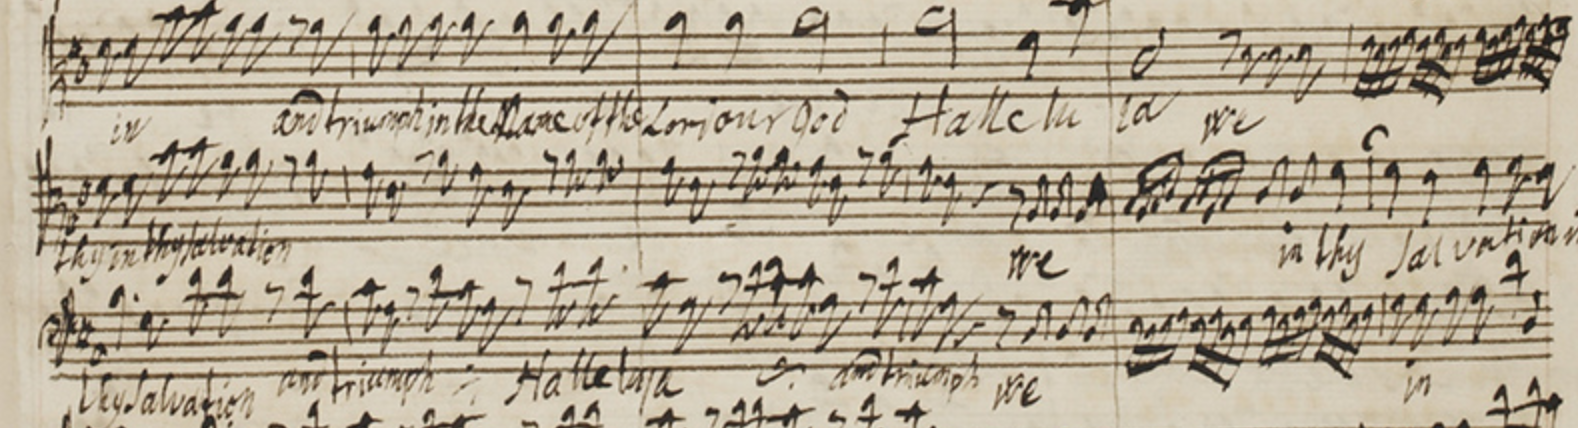 in and triumph in the Name of the Lorious God Hallelu ia we
thy in thy salvation we in thy salvation
thy salvation and triumph Halleluya and triumph we in